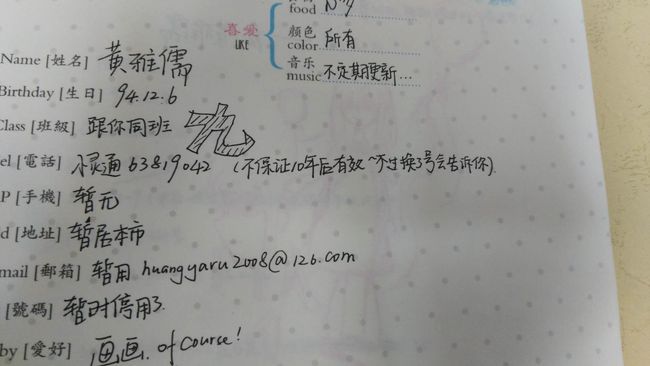 food
喜愛 LIKE
顏色 color 所有
音乐 music 不定期更新...
Name [姓名] 黄雅儒
Birthday [生日] 94.12.6
Class [班級] 跟你同班 九
el [電話] 小灵通 63819042 (不保证10年后有效~不过换了号会告诉你)
P [手機] 暂无
d [地址] 暂居本市
mail [郵箱] 暂用 huangyaru2008@126.com
[號碼] 暂时停用了
by [愛好] 画画. of course!